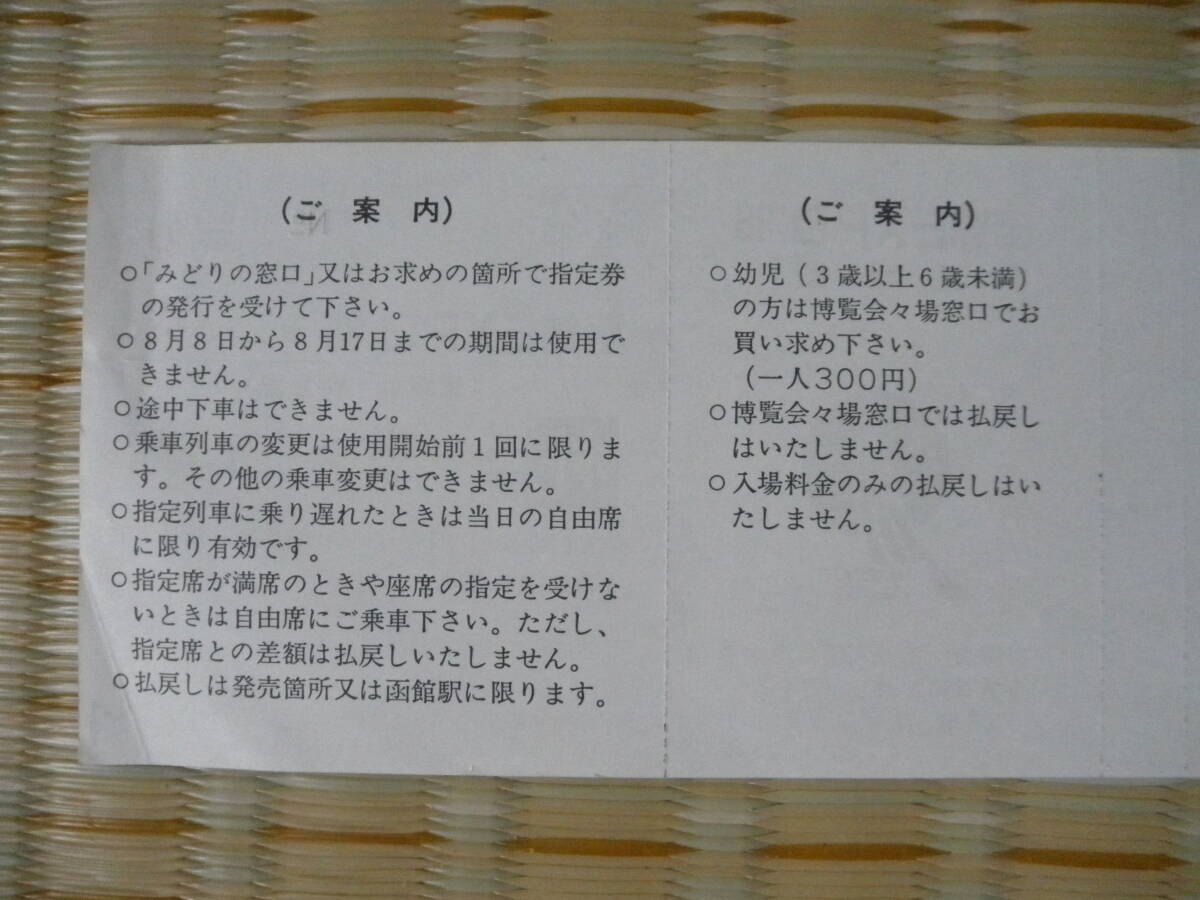 (ご 案 内)
○「みどりの窓口」又はお求めの箇所で指定券
の発行を受けて下さい。
○8月8日から8月17日までの期間は使用で
きません。
○途中下車はできません。
○乗車列車の変更は使用開始前1回に限りま
す。その他の乗車変更はできません。
○指定列車に乗り遅れたときは当日の自由席
に限り有効です。
○指定席が満席のときや座席の指定を受けな
いときは自由席にご乗車下さい。ただし、
指定席との差額は払戻しいたしません。
○払戻しは発売箇所又は函館駅に限ります。
(ご 案 内)
○幼児(3歳以上6歳未満)
の方は博覧会々場窓口でお
買い求め下さい。
(一人300円)
○博覧会々場窓口では払戻し
はいたしません。
○入場料金のみの払戻しはい
たしません。